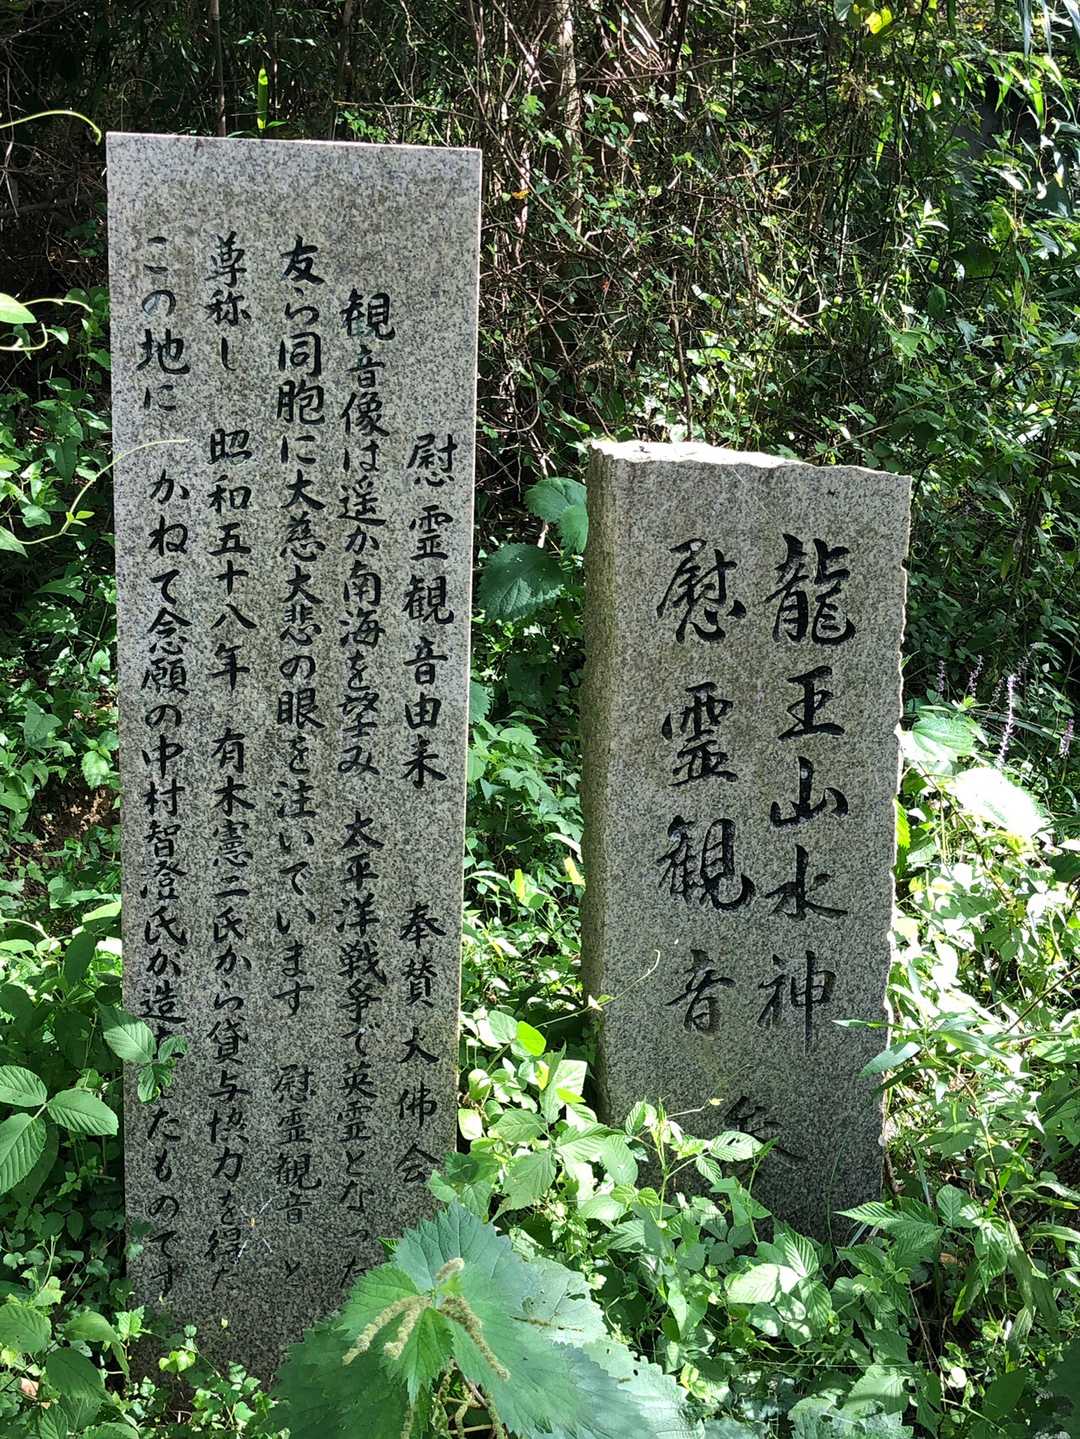 慰霊観音由来 奉賛大佛会
観音像は遥か南海を望み 太平洋戦争で英霊となった
友ら同胞に大慈大悲の眼を注いています 慰霊観音と
尊称し 昭和五十八年 有木憲二氏から貸与協力を得た
この地に かねて念願の中村智澄氏が造立したものです
龍王山水神
慰霊観音